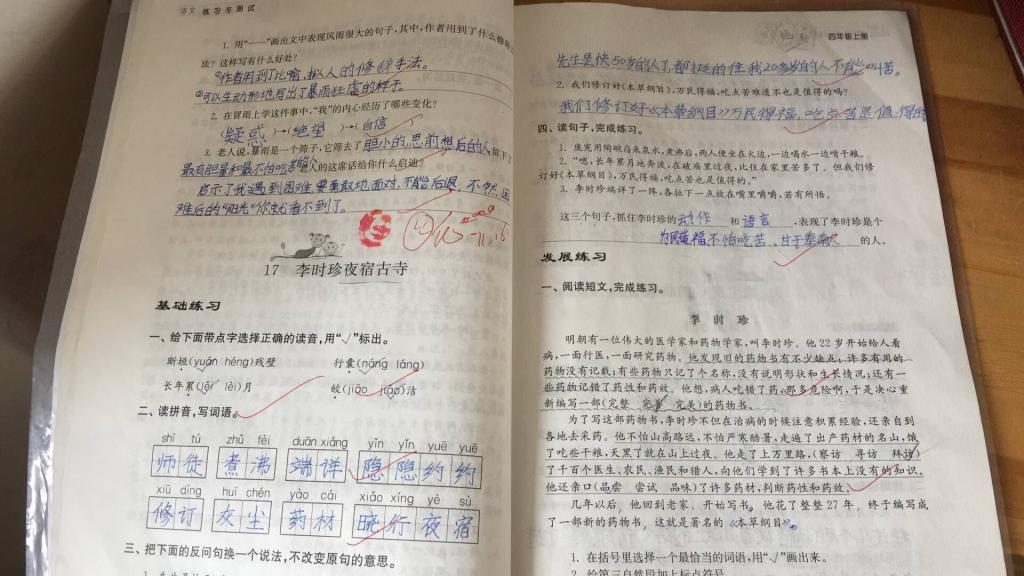 语文 练习与测试
1. 用“——”画出文中表现风雨很大的句子,其中,作者用到了什么修辞
法?这样写有什么好处?
①作者用到了比喻,拟人的修辞手法。
②可以生动形地写出了暴雨狂虐的样子。
2. 在冒雨上学这件事中,“我”的内心经历了哪些变化?
(疑惑)→(绝望)→(自信)
3. 老人说,暴雨是一个筛子,它筛去了胆小的,思前想后的人,留下了
最有胆量和最不怕吃苦的人。老人的这席话给你什么启迪?
启示了我遇到困难要勇敢地面对,不能后退,不然困
难后的“阳光”你就看不到了。
17 李时珍夜宿古寺
基础练习
一、给下面带点字选择正确的读音,用“√”标出。
断垣(yuán héng)残壁 行囊(náng láng)
长年累(lěi lèi)月 皎(jiāo jiǎo)洁
二、读拼音,写词语。
shī tú zhǔ fèi duān xiáng yǐn yǐn yuē yuē
师徒 煮沸 端详 隐隐约约
xiū dìng huī chén yào cái xiǎo xíng yè sù
修订 灰尘 药材 晓行夜宿
三、把下面的反问句换一个说法,不改变原句的意思。
四年级上册
先生是快50岁的人了,都挺的住,我20多岁的人不能叫苦。
2. 我们修订好《本草纲目》,万民得福,吃点苦难道不也是值得的吗?
我们修订好《本草纲目》万民得福,吃点苦是值得的
四、读句子,完成练习。
1. 庞宪用陶碗舀来泉水,煮沸后,两人便坐在火边,一边喝水一边啃干粮。
2. “嗯,长年累月地奔波,在破庙里过夜,比住在家里苦多了。但我们修
订好《本草纲目》,万民得福,吃点苦也是值得的。”
3. 李时珍端详了一阵,各拉下一点放在嘴里嚼嚼,若有所悟。
这三个句子,抓住李时珍的动作和语言,表现了李时珍是个
为民造福不怕吃苦,甘于奉献的人。
发展练习
一、阅读短文,完成练习。
李时珍
明朝有一位伟大的医学家和药物学家,叫李时珍。他22岁开始给人看
病,一面行医,一面研究药物。他发现旧的药物书有不少缺点:许多有用的
药物没有记载;有些药物只记了个名称,没有说明形状和生长情况;还有一
些药物记错了药性和药效。他想,病人吃错了药,那多危险啊,于是决心重
新编写一部(完整 完善 完美)的药物书。
为了写这部药物书,李时珍不但在治病的时候注意积累经验,还亲自到
各地去采药。他不怕山高路远,不怕严寒酷暑,走遍了出产药材的名山,饿
了吃些干粮,天黑了就在山上过夜。他走了上万里路,(察访 寻访 拜访)
了千百个医生、农民、渔民和猎人,向他们学到了许多书本上没有的知识。
他还亲口(品尝 尝试 品味)了许多药材,判断药性和药效。
几年以后,他回到老家,开始写书。他花了整整27年,终于编写成
了一部新的药物书,这就是著名的《本草纲目》。
1. 在括号里选择一个最恰当的词语,用“√”画出来。
2. 给第三自然段加上标点符号。